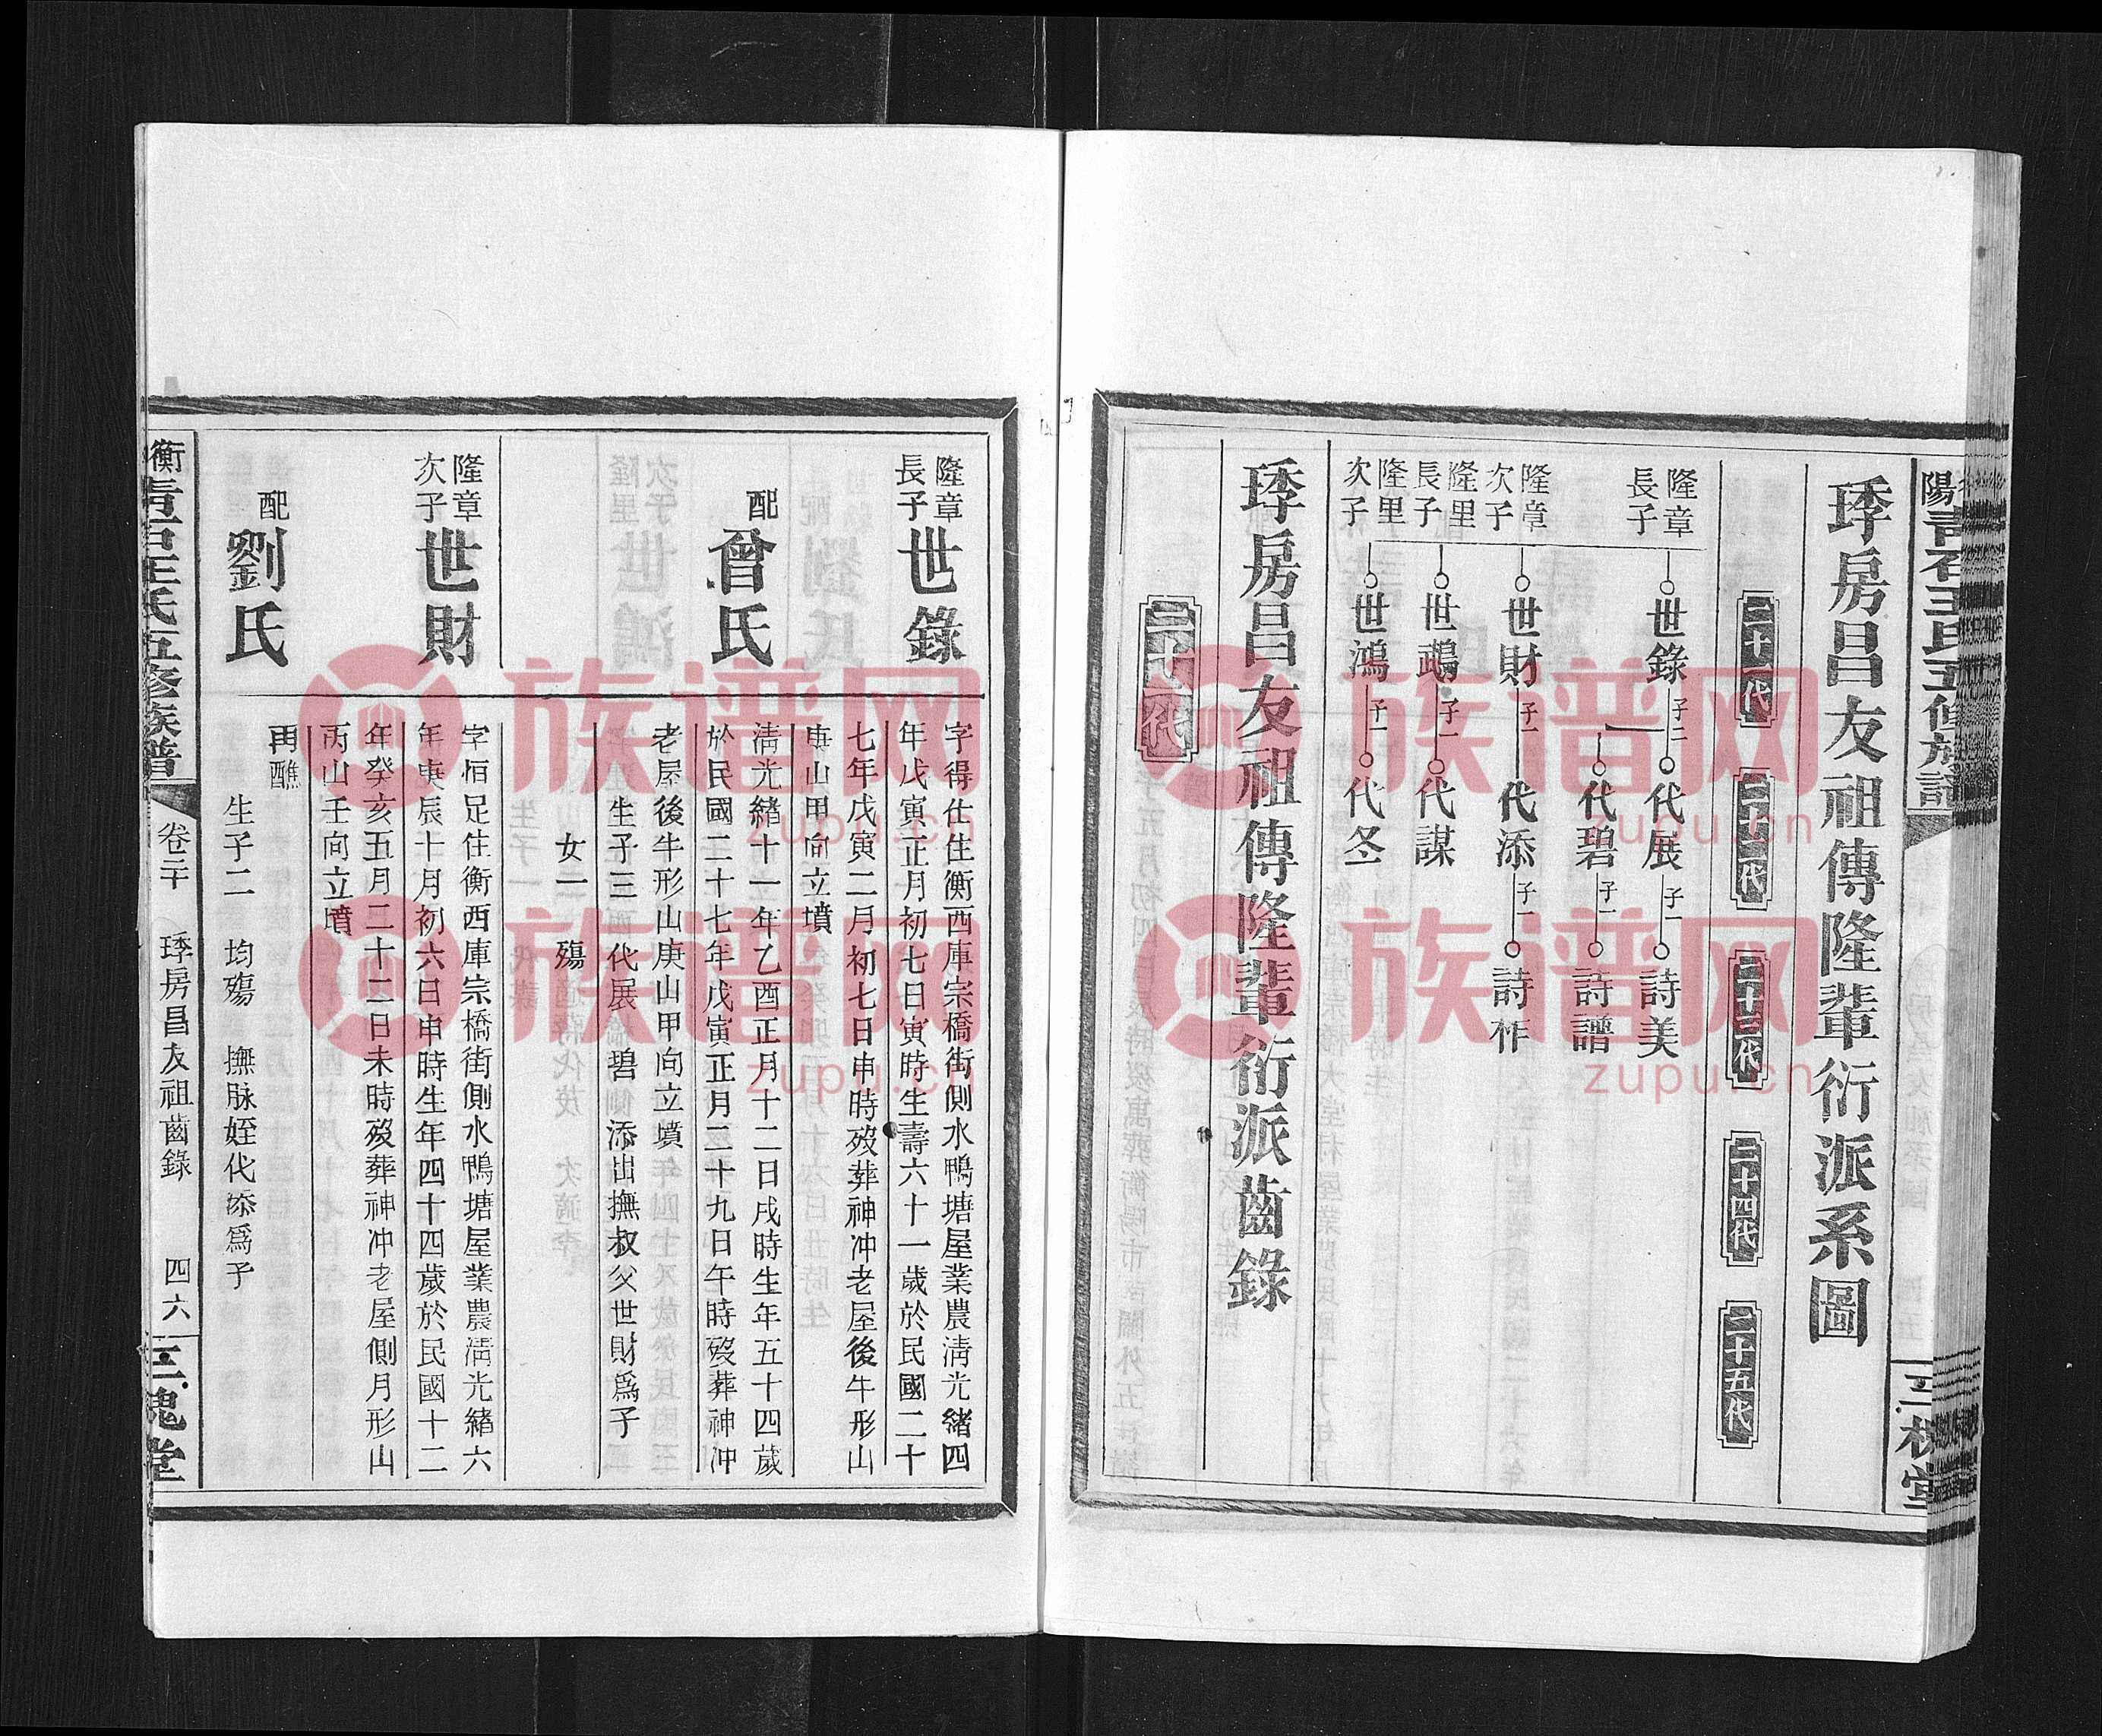 琒房昌友祖傳隆輩衍派系圖
二十一代
二十二代
二十三代
二十四代
二十五代
隆章
長子
世錄
子二
代展
子一
詩美
代碧
子一
詩譜
隆章
次子
世財
子一
代添
子一
詩柞
隆里
長子
世鵡
子一
代謀
隆里
次子
世鴻
子一
代冬
琒房昌友祖傳隆輩衍派齒錄
二十一代
隆章
長子
世錄
字得仕住衡西庫宗橋街側水鴨塘屋業農清光緒四
年戊寅正月初七日寅時生壽六十一歲於民國二十
七年戊寅二月初七日申時歿葬神冲老屋後牛形山
庚山甲向立墳
配
曾氏
清光緒十一年乙酉正月十二日戌時生年五十四歲
於民國二十七年戊寅正月二十九日午時歿葬神冲
老屋後牛形山庚山甲向立墳
生子三 代展 碧 添出撫叔父世財爲子
女一 殤
隆章
次子
世財
字恒足住衡西庫宗橋街側水鴨塘屋業農清光緒六
年庚辰十月初六日申時生年四十四歲於民國十二
年癸亥五月二十二日未時歿葬神冲老屋側月形山
丙山壬向立墳
配
劉氏
再醮
生子二 均殤 撫脉姪代添爲子
衡
王氏五修族譜
卷二十
琒房昌友祖齒錄
四六
三槐堂
族谱网
zupu.cn
族谱网
zupu.cn
族谱网
zupu.cn
族谱网
zupu.cn